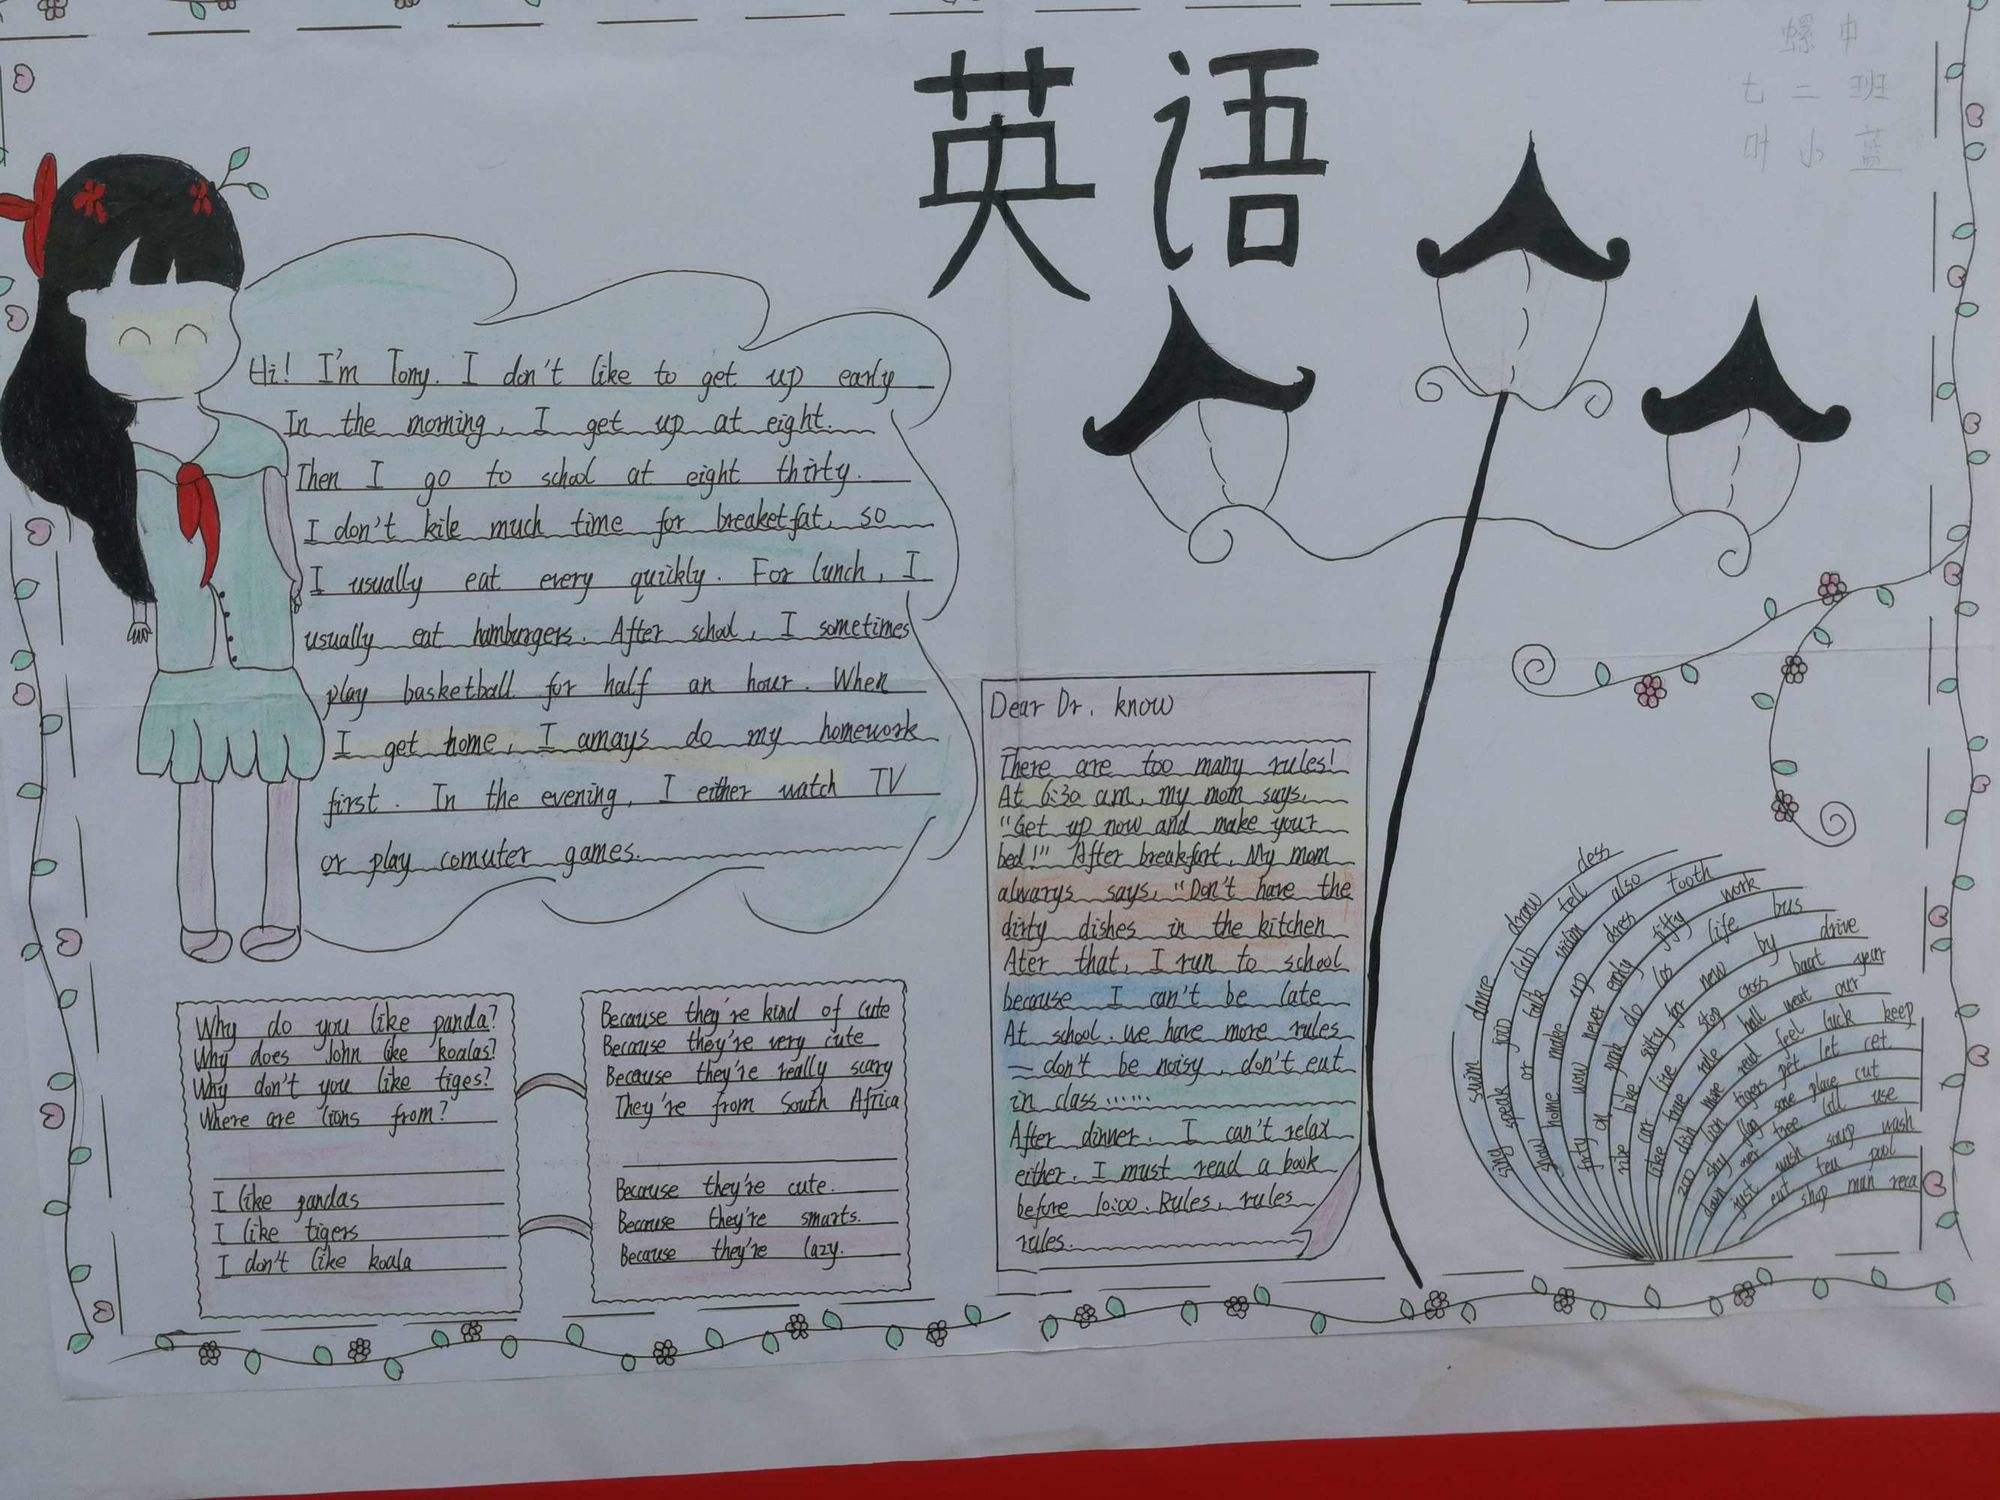 英语
螺中
七二班
叶小蓝
Hi! I'm Tony. I don't like to get up early
In the morning, I get up at eight.
Then I go to school at eight thirty.
I don't kile much time for breaketfat, so
I usually eat every quickly. For lunch, I
usually eat hamburgers. After school, I sometimes
play basketball for half an hour. When
I get home, I amays do my homework
first. In the evening, I either watch TV
or play comuter games.
Dear Dr. know
There are too many rules!
At 6:30 a.m, my mom says,
"Get up now and make your
bed!" After breakfart, My mom
alwarys says, "Don't have the
dirty dishes in the kitchen
Ater that, I run to school
because I can't be late
At school, we have more rules
— don't be noisy, don't eat
in class......
After dinner, I can't relax
either. I must read a book
before 10:00. Rules, rules
rules.
Why do you like panda?
Why does John like koalas?
Why don't you like tiges?
Where are lions from?
I like pandas
I like tigers
I don't like koala
Because they're kind of cute
Because they're very cute
Because they're really scary
They're from South Africa
Because they're cute.
Because they're smarts.
Because they're lazy.
sing swim dance draw dess
speak join club tell also
slow home or talk tooth
make up dress work
forty now never only fifty
bus
by drive
stop cross boat year
our
feel luck keep
tigers pet let
place cut
use
wash soup wash
just eat tea pool
shop man